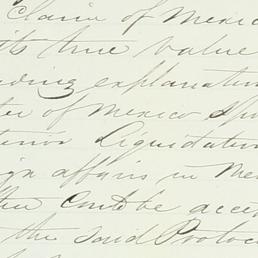 Claim of Mexico
its true value
ding explanation
ter of Mexico
terior Liquidation
ign affairs in Me
then Could be acce
the said Protoc